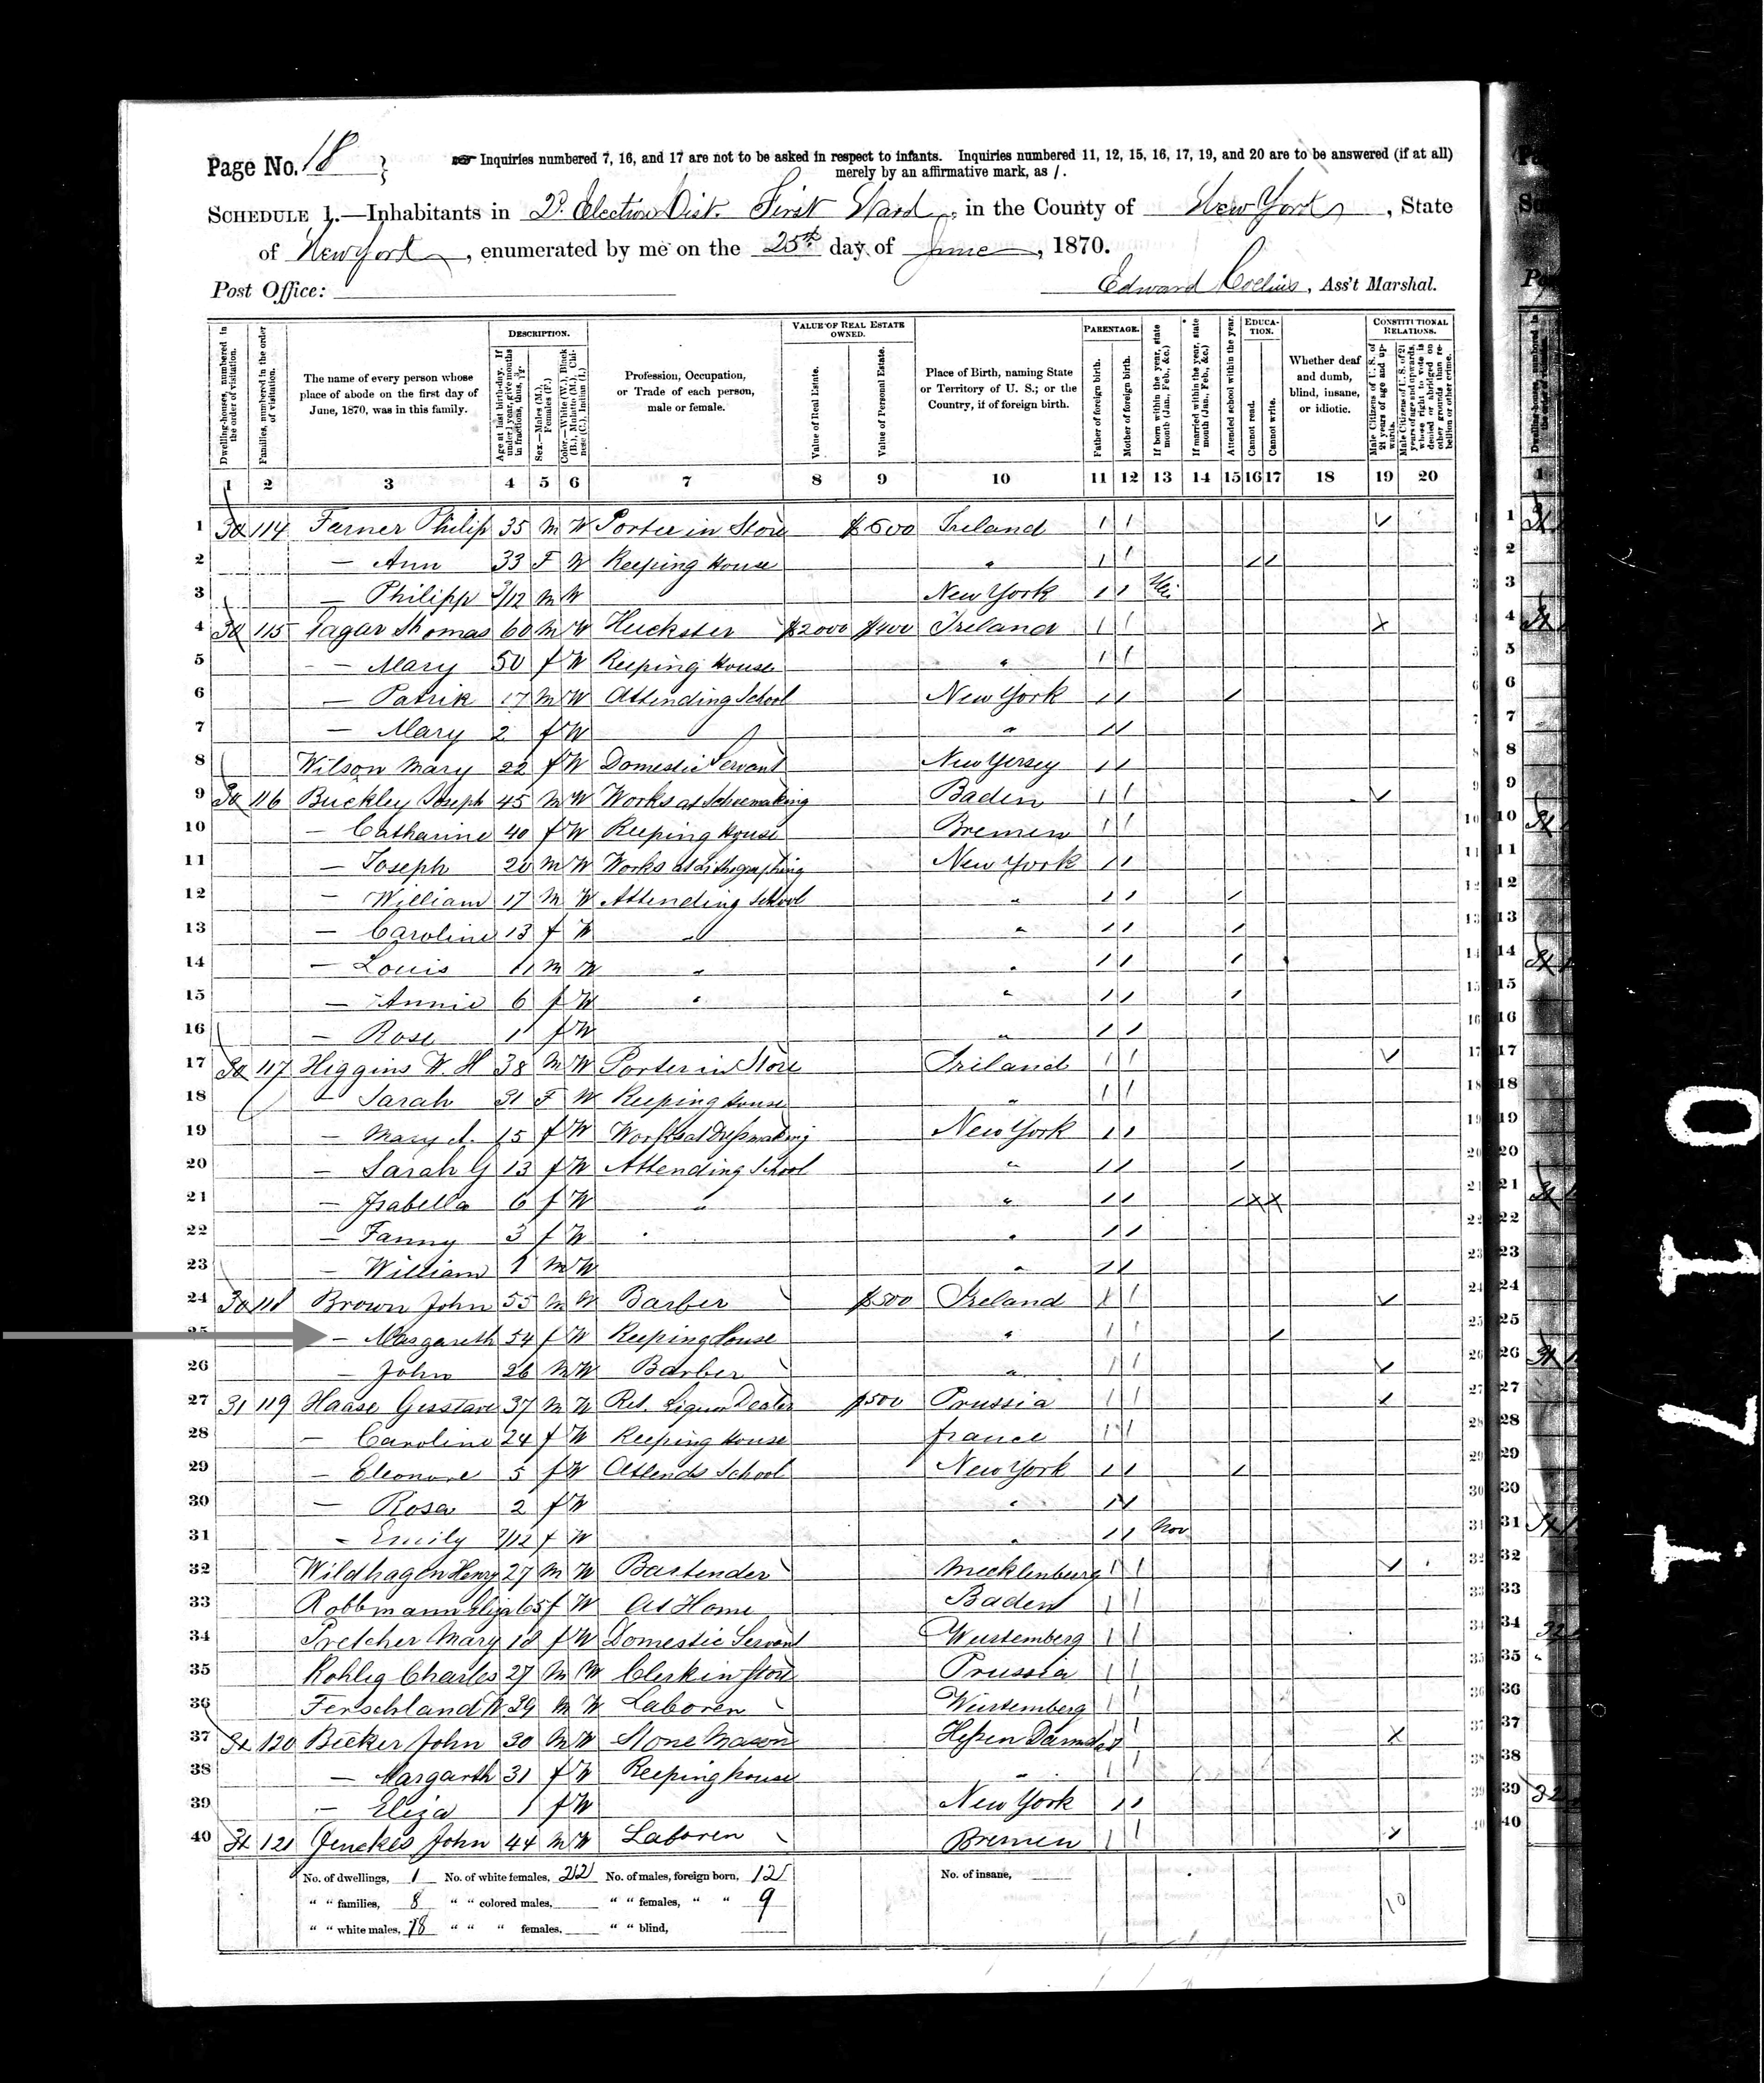 Page No. 18
Inquiries numbered 7, 16, and 17 are not to be asked in respect to infants. Inquiries numbered 11, 12, 15, 16, 17, 19, and 20 are to be answered (if at all)
merely by an affirmative mark, as /.
SCHEDULE 1.—Inhabitants in 2d. Election Dist. First Ward, in the County of New York, State
of New York, enumerated by me on the 25th day of June, 1870.
Post Office:
Edward Collins, Ass't Marshal.
DESCRIPTION. VALUE OF REAL ESTATE OWNED. PARENTAGE. EDUCATION. CONSTITUTIONAL RELATIONS.
Dwelling-houses, numbered in the order of visitation.
Families, numbered in the order of visitation.
The name of every person whose place of abode on the first day of June, 1870, was in this family.
Age at last birth-day. If under 1 year, give months in fractions, thus, 3/12.
Sex.—Males (M.), Females (F.)
Color.—White (W.), Black (B.), Mulatto (M.), Chinese (C.), Indian (I.)
Profession, Occupation, or Trade of each person, male or female.
Value of Real Estate.
Value of Personal Estate.
Place of Birth, naming State or Territory of U. S.; or the Country, if of foreign birth.
Father of foreign birth.
Mother of foreign birth.
If born within the year, state month (Jan., Feb., &c.)
If married within the year, state month (Jan., Feb., &c.)
Attended school within the year.
Cannot read.
Cannot write.
Whether deaf and dumb, blind, insane, or idiotic.
Male Citizens of U. S. of 21 years of age and upwards.
Male Citizens of U. S. of 21 years of age and upwards, whose right to vote is denied or abridged on other grounds than rebellion or other crime.
1 2 3 4 5 6 7 8 9 10 11 12 13 14 15 16 17 18 19 20
1 30 114 Farner Philip 35 M W Porter in Store $600 Ireland / /
2 — Ann 33 F W Keeping House " / / / /
3 — Philipp /12 M W New York / /
4 30 115 Thomas 60 M W Huckster $2000 $400 Ireland / /
5 — Mary 50 f W Keeping House " / /
6 — Patrik 17 M W Attending School New York / / /
7 — Mary 2 f W " / /
8 Wilson Mary 22 f W Domestic Servant New Yersey / /
9 30 116 Buckley Joseph 45 M W Works at Shoemaking Baden / /
10 — Catharine 40 f W Keeping House Bremen / /
11 — Joseph 20 M W Works at Lithographing New York / /
12 — William 17 M W Attending School " / / /
13 — Caroline 13 f W " " / / /
14 — Louis 11 M W " " / / /
15 — Annie 6 f W " " / / /
16 — Rose 1 f W " / /
17 30 117 Higgins W. H 38 M W Porter in Store Ireland / /
18 — Sarah 31 F W Keeping House " / /
19 — Mary A. 15 f W Works at Dressmaking New York / /
20 — Sarah G 13 f W Attending School " / / /
21 — Isabella 6 f W " " / / / X X
22 — Fanny 3 f W " / /
23 — William 1 M W " / /
24 30 118 Brown John 55 M W Barber $500 Ireland / /
25 — Margareth 54 f W Keeping House " / / /
26 — John 26 M W Barber " / /
27 31 119 Haase Gustave 37 M W Ret. Liquor Dealer $500 Prussia / /
28 — Caroline 24 f W Keeping House france / /
29 — Eleonore 5 f W Attends School New York / / /
30 — Rosa 2 f W " / /
31 — Emily 7/12 f W " / / Nov
32 Wildhagen Henry 27 M W Bartender Mecklenburg / /
33 Robbmann Eliza 65 f W At Home Baden / /
34 Pretcher Mary 18 f W Domestic Servant Wurtemberg / /
35 Kohlig Charles 27 M W Clerk in Store Prussia / /
36 Ferschland W 39 M W Laborer Wurtemberg / /
37 31 120 Becker John 30 M W Stone Mason Hessen Darmstadt / / X
38 — Margarth 31 f W Keeping house " / /
39 — Eliza 1 f W New York / /
40 31 121 Jenckes John 44 M W Laborer Bremen / /
No. of dwellings, 1 No. of white females, 22 No. of males, foreign born, 12 No. of insane,
" " families, 8 " " colored males, " " females, " " 9 10
" " white males, 18 " " " females, " " blind,
T-7110